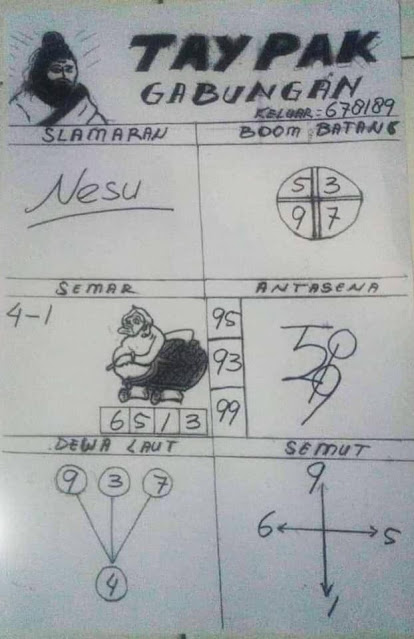 TAYPAK
GABUNGAN
KELUAR=678189
SLAMARAN
BOOM BATANG
Nesu
5 3
9 7
SEMAR
ANTASENA
4-1
95
93
99
6 5 1 3
DEWA LAUT
SEMUT
9 3 7
4
9
6 5
1